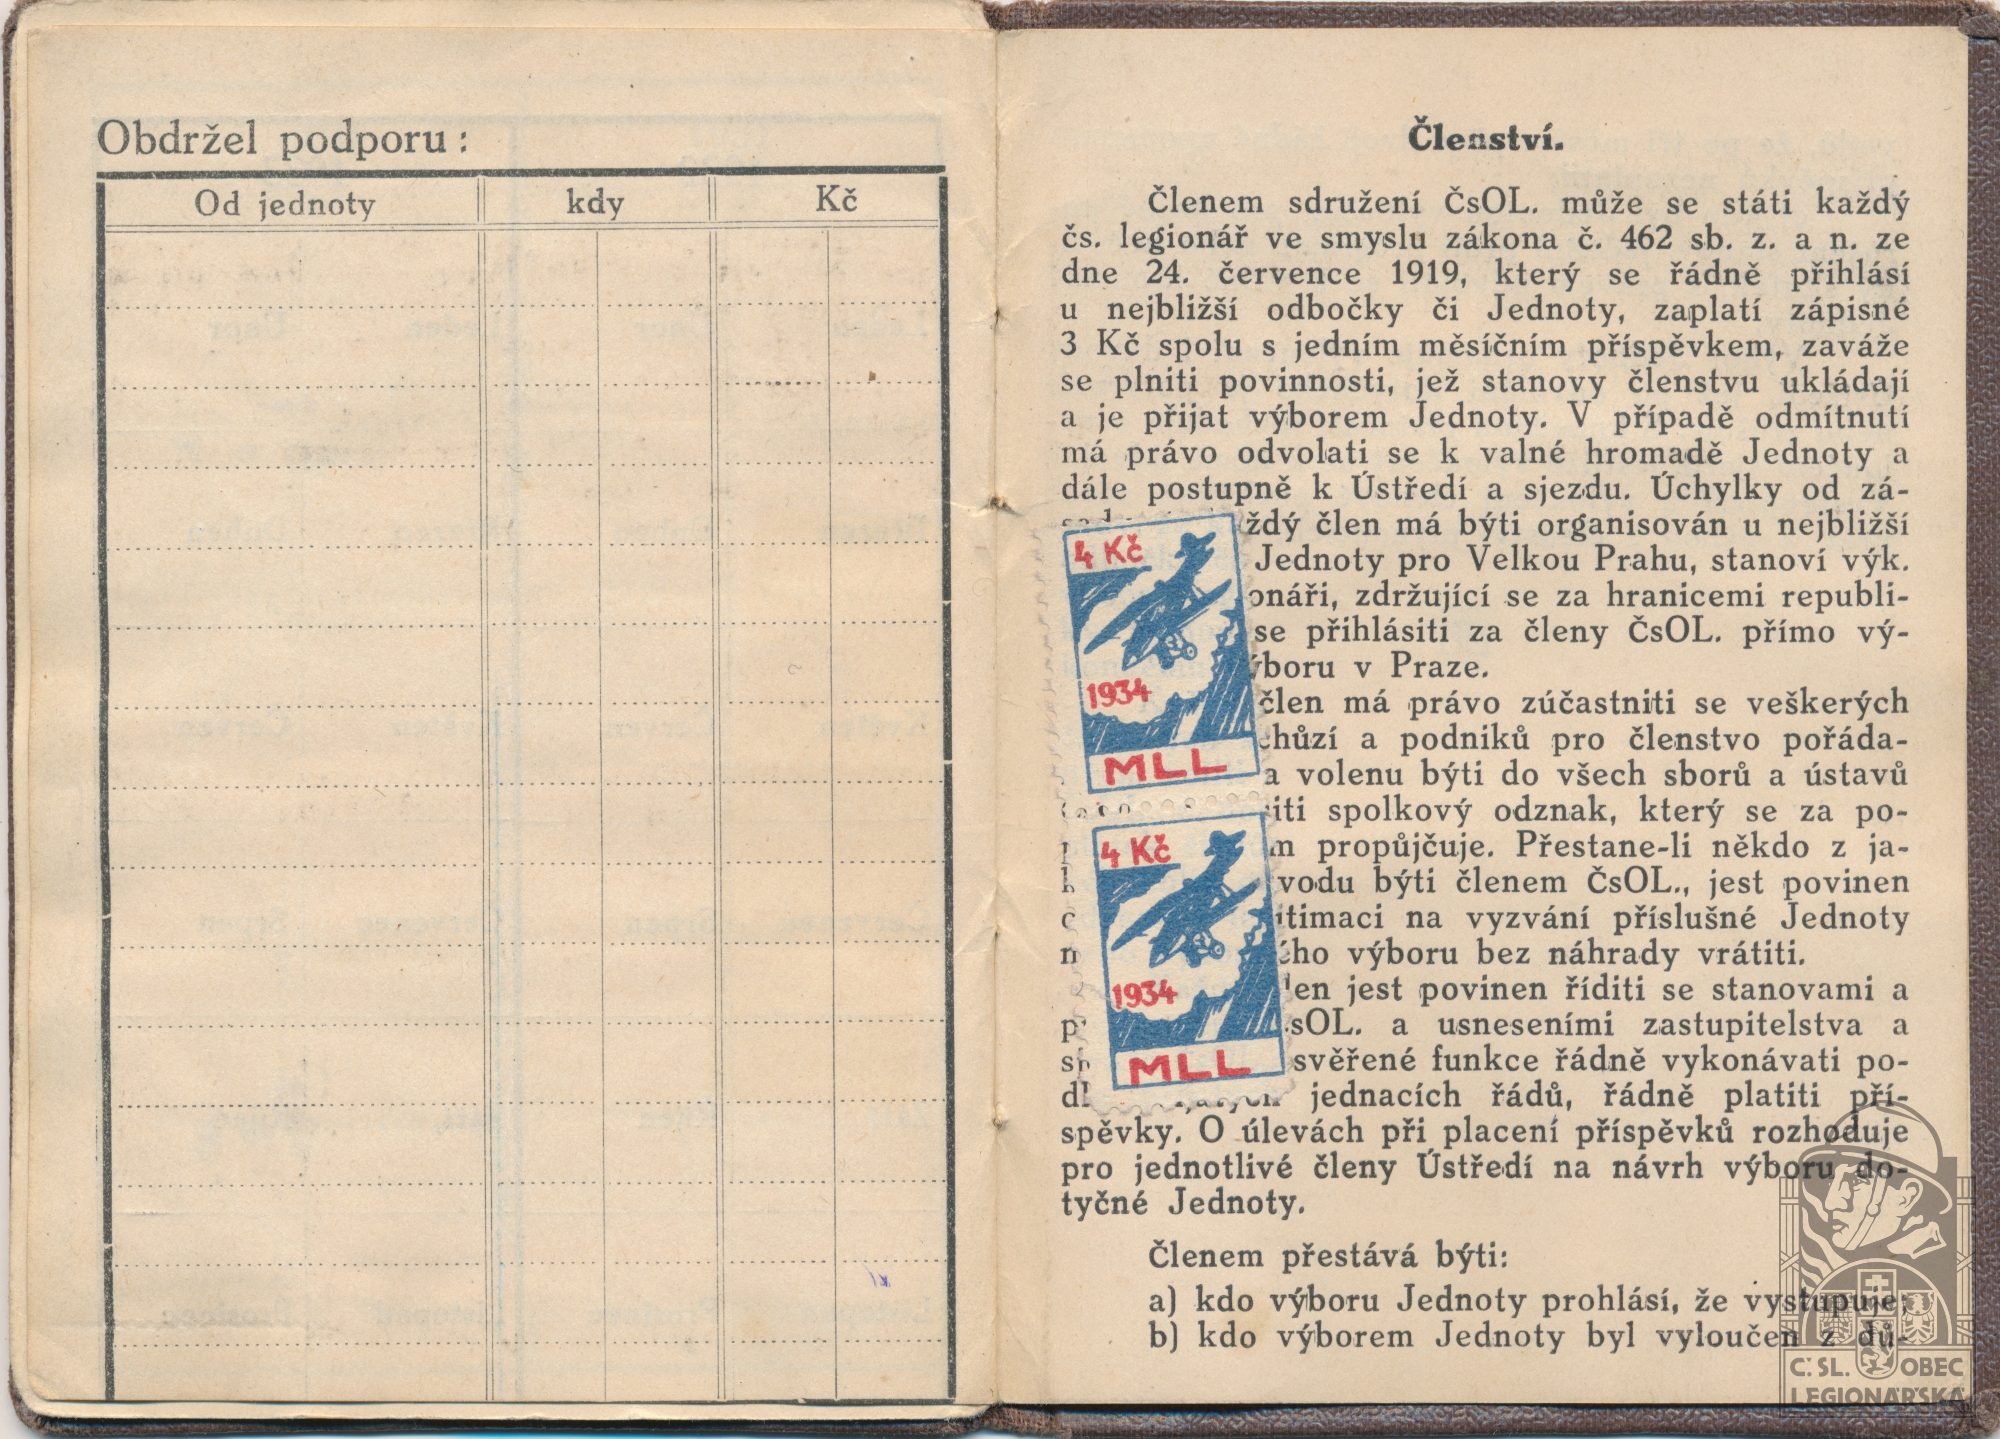 Obdržel podporu:
Od jednoty
kdy
Kč
Členství.
Členem sdružení ČsOL. může se státi každý
čs. legionář ve smyslu zákona č. 462 sb. z. a n. ze
dne 24. července 1919, který se řádně přihlásí
u nejbližší odbočky či Jednoty, zaplatí zápisné
3 Kč spolu s jedním měsíčním příspěvkem, zaváže
se plniti povinnosti, jež stanovy členstvu ukládají
a je přijat výborem Jednoty. V případě odmítnutí
má právo odvolati se k valné hromadě Jednoty a
dále postupně k Ústředí a sjezdu. Úchylky od zá-
ždý člen má býti organisován u nejbližší
Jednoty pro Velkou Prahu, stanoví výk.
onáři, zdržující se za hranicemi republi-
se přihlásiti za členy ČsOL. přímo vý-
ýboru v Praze.
člen má právo zúčastniti se veškerých
chůzí a podniků pro členstvo pořáda-
a volenu býti do všech sborů a ústavů
iti spolkový odznak, který se za po-
m propůjčuje. Přestane-li někdo z ja-
vodu býti členem ČsOL., jest povinen
itimaci na vyzvání příslušné Jednoty
ého výboru bez náhrady vrátiti.
len jest povinen říditi se stanovami a
sOL. a usneseními zastupitelstva a
svěřené funkce řádně vykonávati po-
jednacích řádů, řádně platiti pří-
spěvky. O úlevách při placení příspěvků rozhoduje
pro jednotlivé členy Ústředí na návrh výboru do-
tyčné Jednoty.
Členem přestává býti:
a) kdo výboru Jednoty prohlásí, že vystupuje;
b) kdo výborem Jednoty byl vyloučen z dů-
4 Kč
1934
MLL
4 Kč
1934
MLL
Č. SL. OBEC
LEGIONÁŘSKÁ